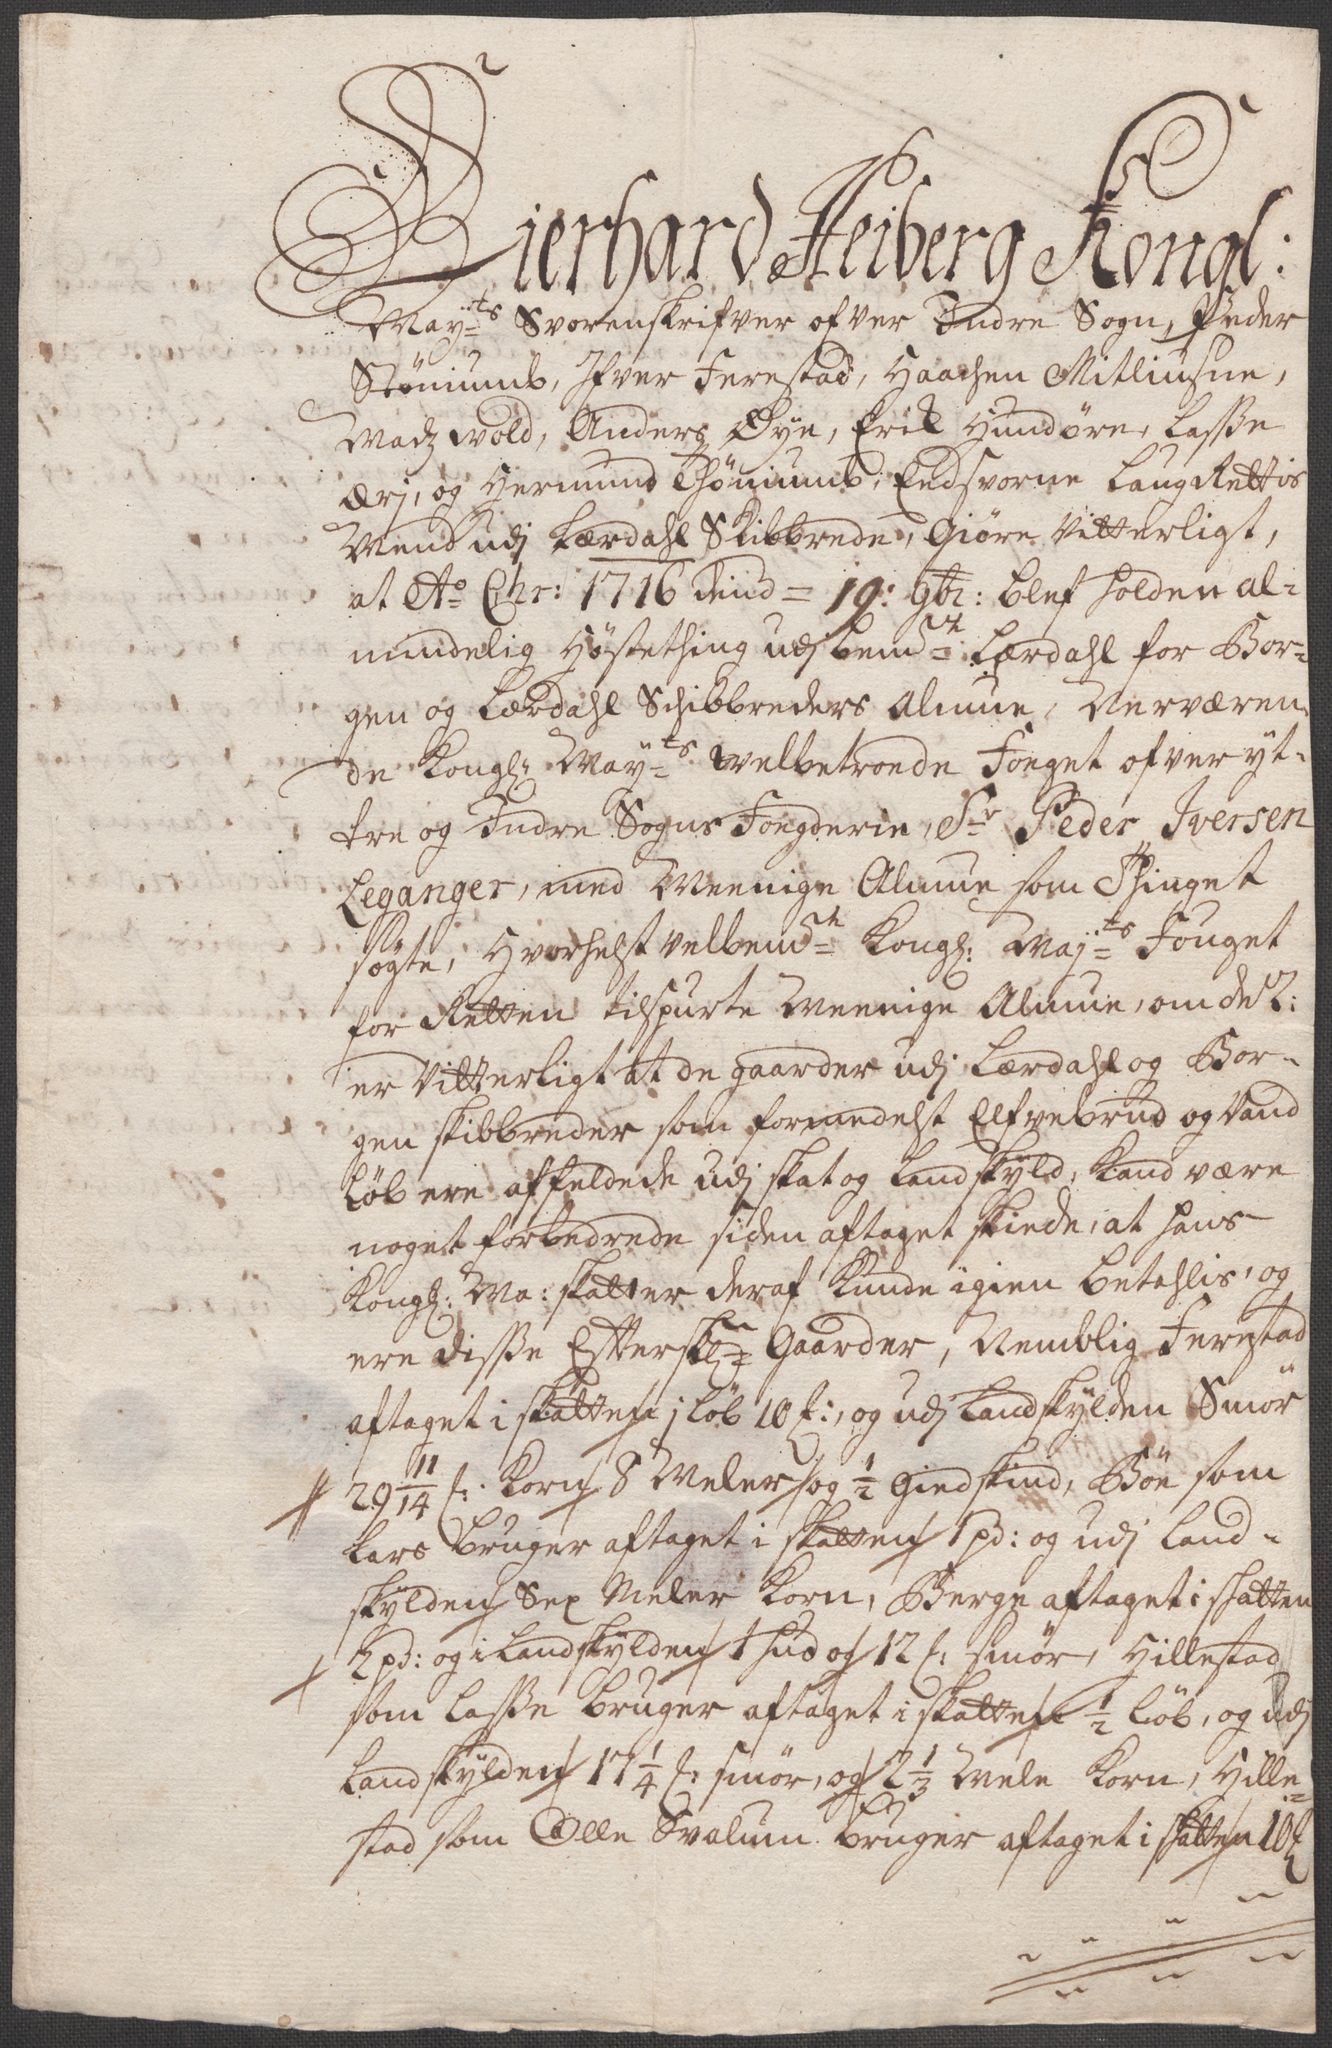 Gierhard Heiberg Kongl:
May:ts Svorenskrifver ofver Indre Sogn, Peder
Støniumb, Ifver Ferestad, Haachen Mitliusne,
Madz Wold, Anders Øye, Erik Hundøre, Lasse
Ærj, og Hermund Thøniumb, Eedsvorne Laug Rettis
Mend udj Lærdahl Skibbrede, Giøre Vitterligt,
at Ao Chr: 1716 dend = 19: 9br: blef holden al-
mindelig Høstething udj bemte Lærdahl for Bor-
gen og Lærdahl Schibbreders Almue, Nerværen-
de Kongl: May:ts Welbetroede Foeget ofver yt-
tre og Indre Sogns Foegderie, Sr Peder Iversen
Leganger, med Meenige Almue som Thinget
søgte, Hvorhelst velbemte Kongl: May:ts Fouget
for Retten tilspurte Meenige Almue, om de t:
er Vitterligt at de gaarder udj Lærdahl og Bor-
gen skibbreder som formedelst Elfvebrud og Vand
løb ere affeldede udj skat og Landskyld, Kand være
noget forbedrede siden aftaget skiede, at hans
Kongl: Ma: skatter deraf Kunde igien betahlis, og
ere disse Efterskne Gaarder, Nemblig Ferestad
aftaget i skatten j Løb 10 t:, og udj Landskylden Smør
29 11/14 t: Korn 8 Meler og 1/2 Giedskind, Bøe som
Lars Bruger aftaget i skatten 1 pd: og udj Land-
skylden Sex Meler Korn, Berge aftaget i skatten
2 pd: og i Landskylden 1 hud og 12 t: smør, Hillestad
som Lasse bruger aftaget i skatten 1/2 Løb, og udj
Landskylden 17 1/4 t: smør, og 2 1/3 Mele Korn, Hille-
stad som Olle Svalum bruger aftaget i skatten 10 t